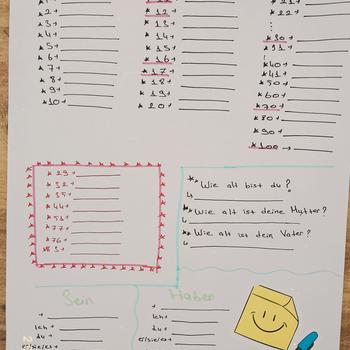 *2→
*3→
*4→
*5→
*6→
*7→
*8→
*9→
*10→
*12→
*13→
14→
*15→
*16→
*17→
*18→
*19→
*20→
*21→
*22→
*30→
*31→
*40→
*41→
50→
*60→
*70→
*80→
*90→
*100→
*29→
*32→
*35→
*44→
*51→
*77→
*76→
Wie alt bist du?
Wie alt ist deine Mutter?
Wie alt ist dein Vater?
Sein
Ich→
du→
er/sie/es→
Haben
Ich→
du→
er/sie/es→